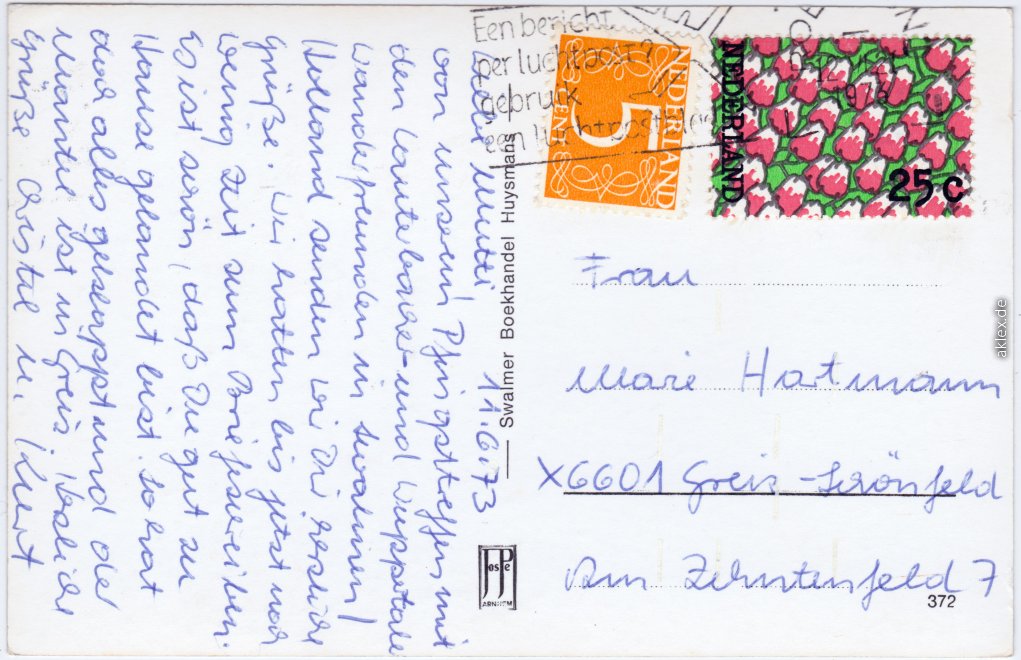 Een bericht
per luchtpost?
gebruik
een luchtpostblad
NEDERLAND
5
CENT
NEDERLAND
25 c
1973
Liebe Mutti 11.6.73
von unserem Pfingsttreffen mit
den Lauterbacher- und Wuppertaler
Wanderfreunden in Swalmen/
Holland senden wir Dir herzliche
Grüße. Wir hatten bis jetzt noch
wenig Zeit zum Briefschreiben.
Es ist schön, daß Du gut zu
Hause gelandet bist. So hat
das alles geklappt und der
Mantel ist in Greiz. Herzliche
Grüße Christel u. Kurt
Swalmer Boekhandel Huysmans
JosPe
ARNHEM
Frau
Marie Hartmann
X6601 Greiz-Schönfeld
Am Zehntenfeld 7
372
aklex.de